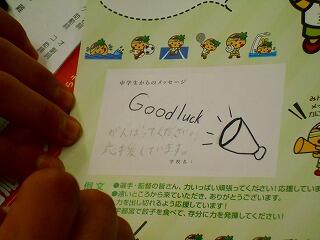 中学生からのメッセージ
Goodluck
がんばってください。
応援しています。
学校名:
例文
●選手・監督の皆さん、力いっぱい頑張ってください!応援していま
●遠いところから来ていただき、ありがとうございます。
力を出し切れるよう応援しています!
都宮で餃子を食べて、存分に力を発揮してください!